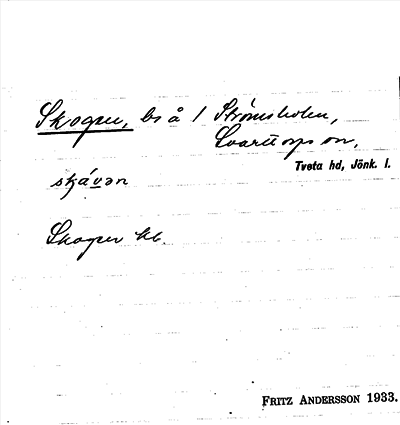 Skogen, ls å / Strömsholm,
Svarttorps sn,
Tveta hd, Jönk. l.
skávən
Skogen kb.
FRITZ ANDERSSON 1933.